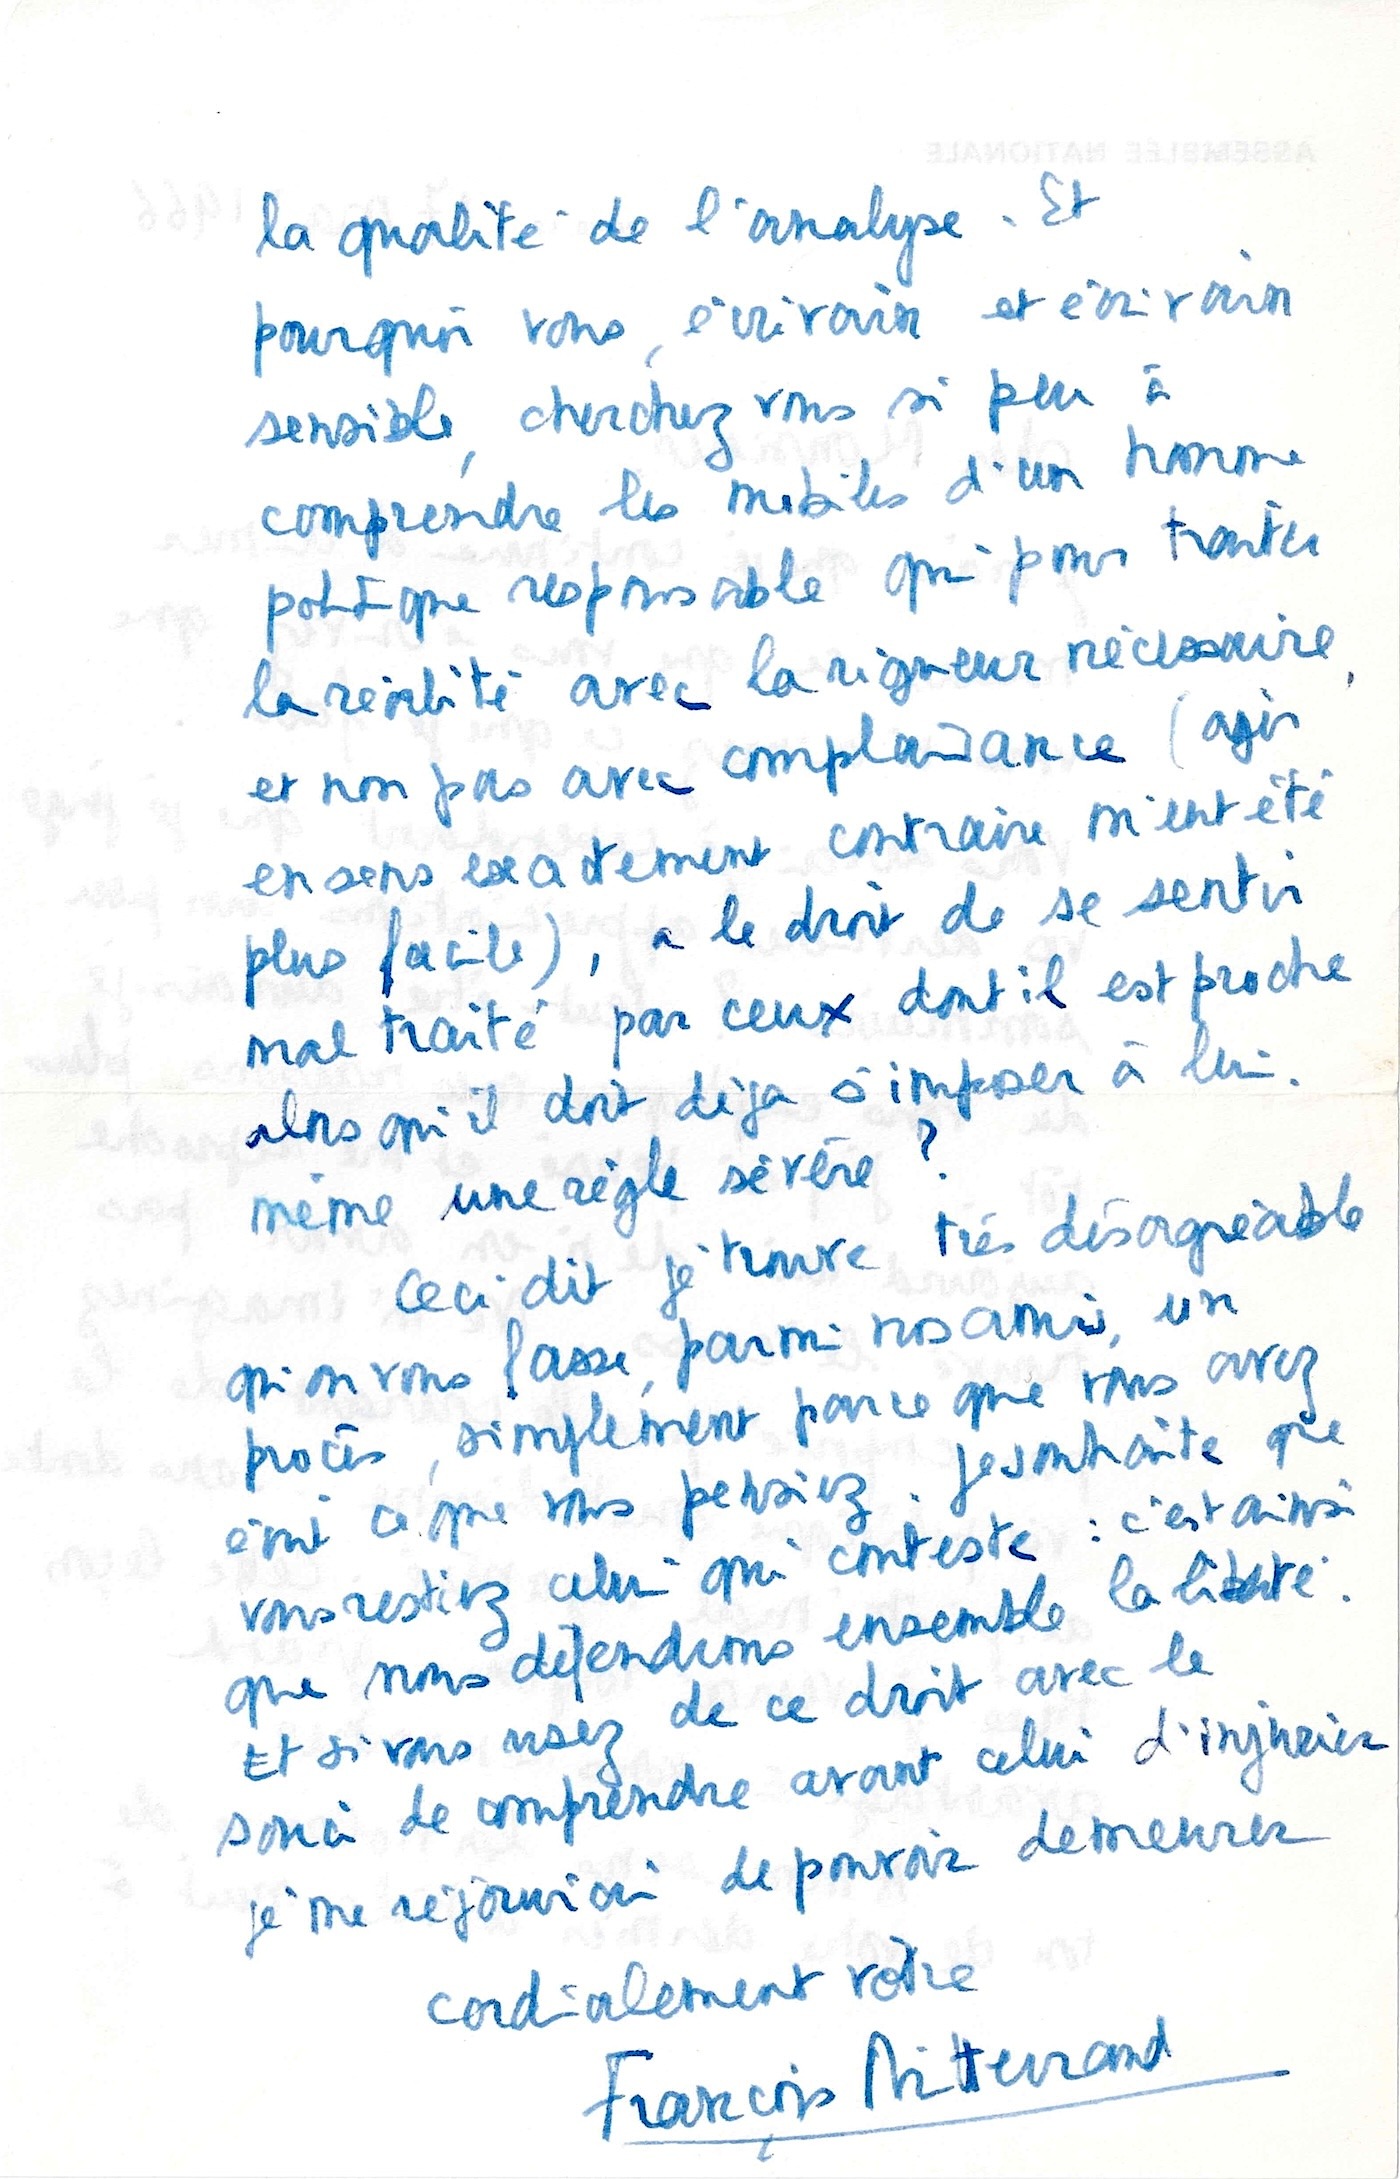 la qualité de l'analyse. Et
pourquoi vous, écrivain et écrivain
sensible, cherchez vous si peu à
comprendre les mobiles d'un homme
politique responsable qui pour traiter
la réalité avec la rigueur nécessaire,
et non pas avec complaisance (agir
en sens exactement contraire m'eut été
plus facile), a le droit de se sentir
mal traité par ceux dont il est proche
alors qu'il doit déja s'imposer à lui-
même une règle sévère ?
Ceci dit je trouve très désagréable
qu'on vous fasse, parmi nos amis, un
procès, simplement parce que vous avez
écrit ce que vous pensiez. Je souhaite que
vous restiez celui qui conteste : c'est ainsi
que nous défendrons ensemble la liberté.
Et si vous usez de ce droit avec le
souci de comprendre avant celui d'injurier
je me réjouirai de pouvoir demeurer
cordialement vôtre
François Mitterrand